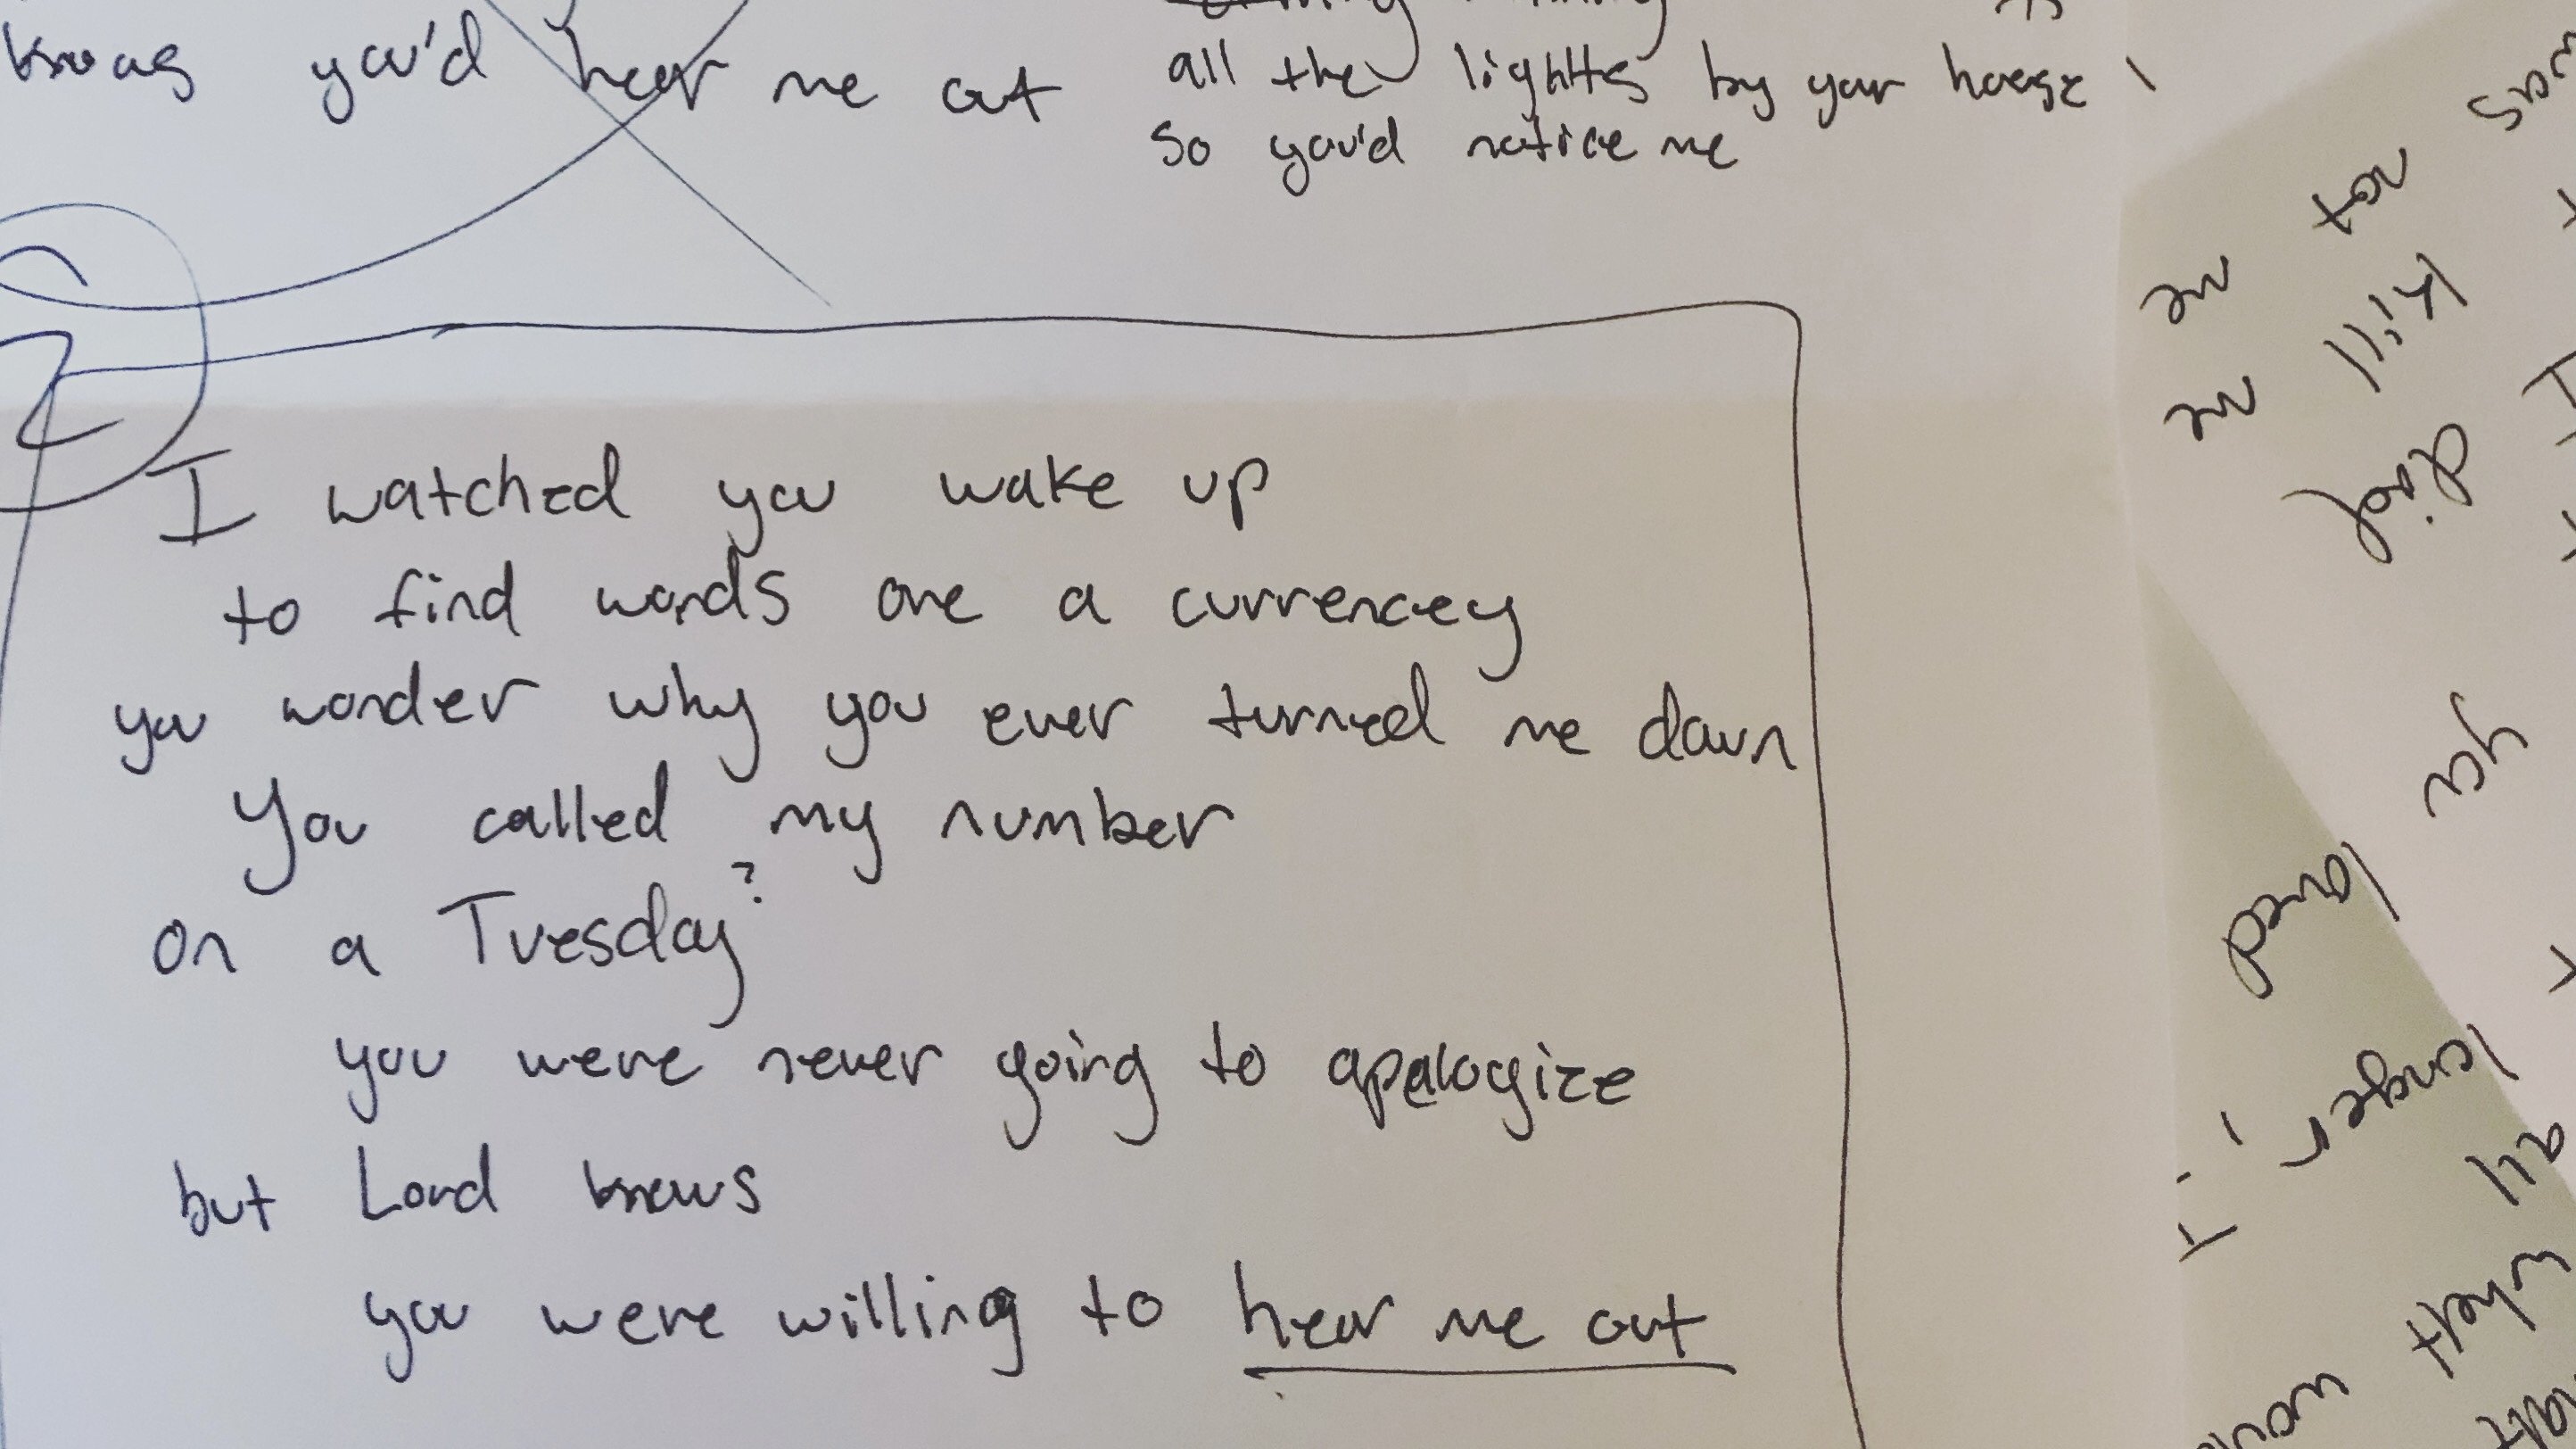 knows you'd hear me out
all the lightts by your house
so you'd notice me
2
I watched you wake up
to find words are a currencey
you wonder why you ever turned me down
You called my number
on a Tuesday?
you were never going to apalogize
but Lord knows
you were willing to hear me out
was
not
me
kill
me
did
I
you
loved
longer
I
all
what